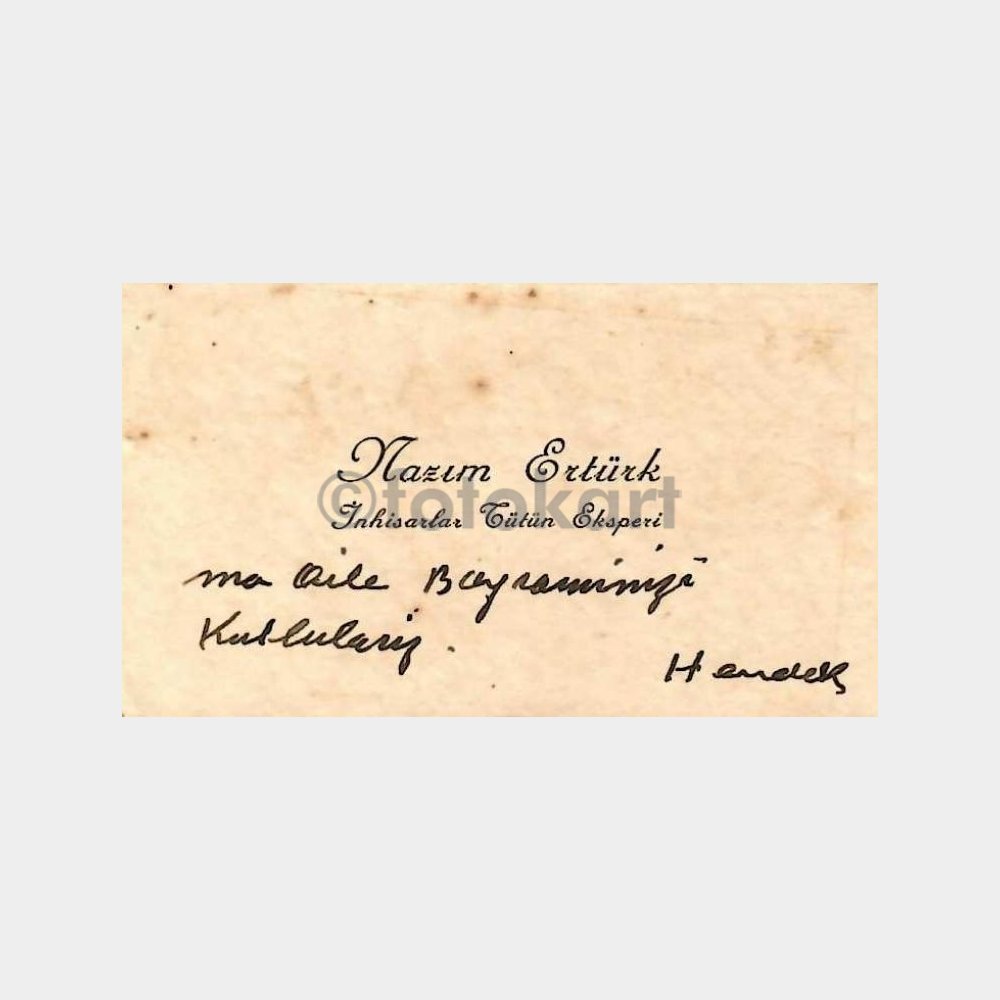 Nazım Ertürk
©fotokart
İnhisarlar Tütün Eksperi
ma Aile Bayraminizi
Kutlulariz.
Hendek